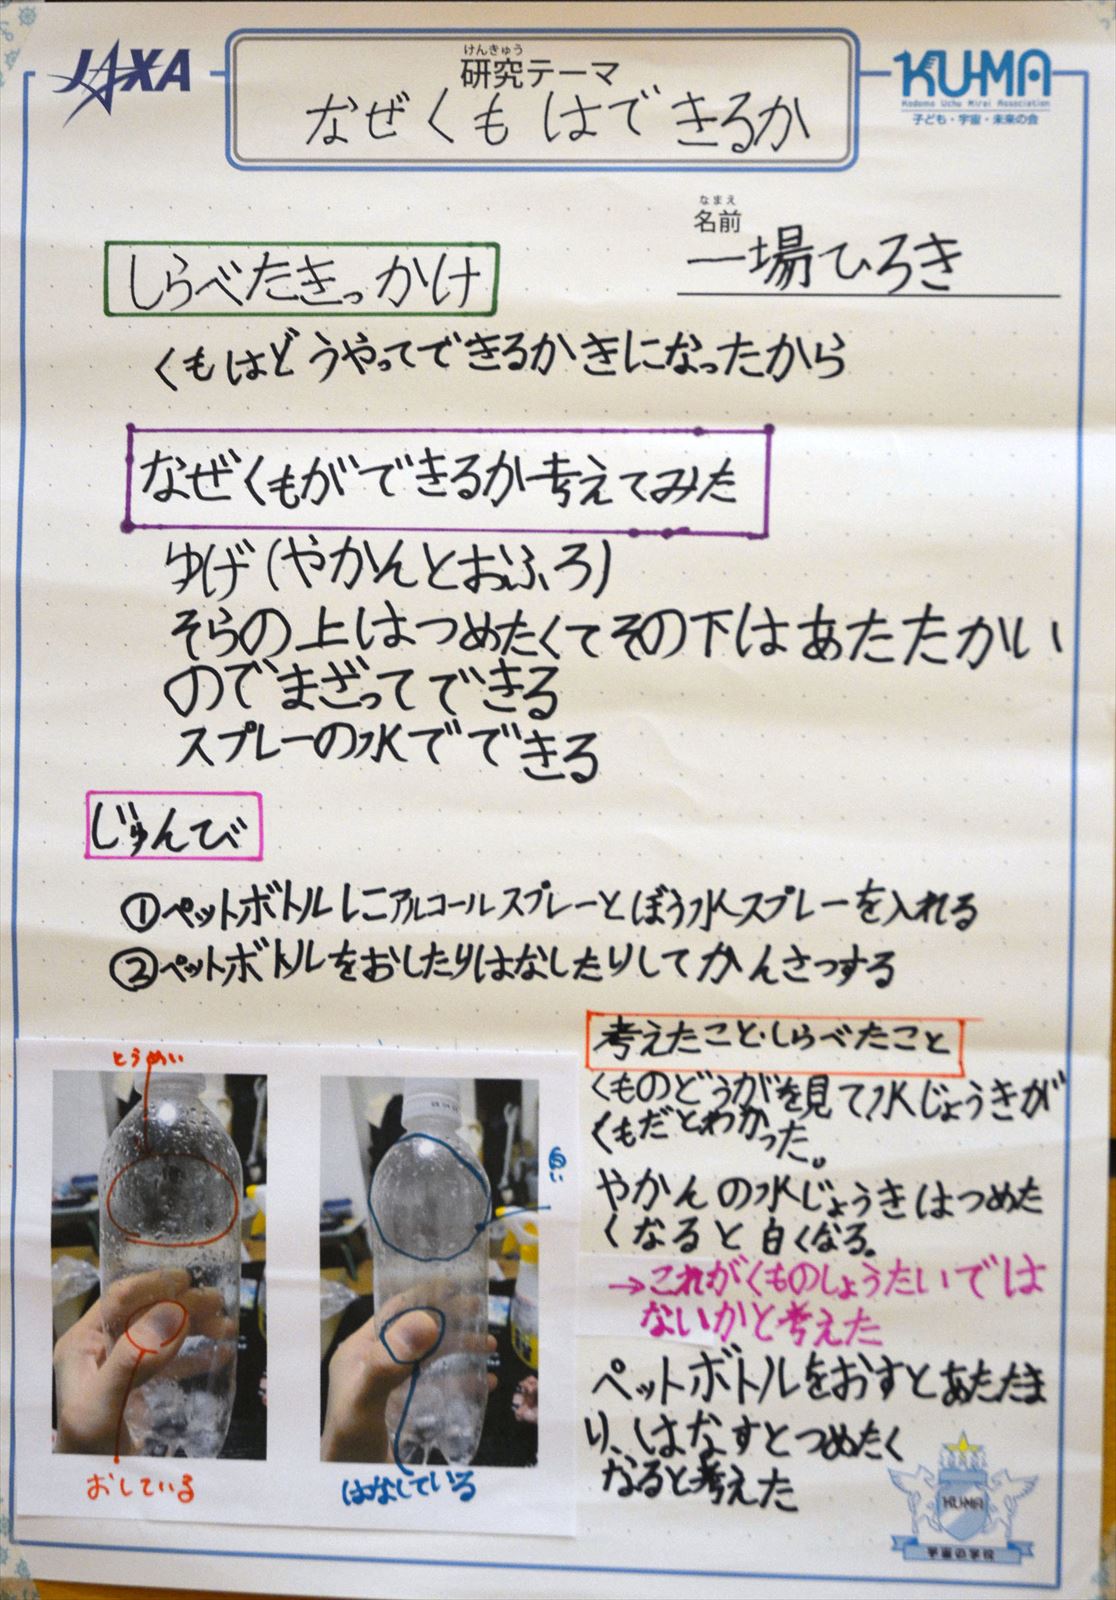 JAXA
けんきゅう
研究テーマ
なぜくもはできるか
KU-MA
Kodomo Uchu Mirai Association
子ども・宇宙・未来の会
なまえ
名前
一場ひろき
しらべたきっかけ
くもはどうやってできるかきになったから
なぜくもができるか考えてみた
ゆげ(やかんとおふろ)
そらの上はつめたくてその下はあたたかい
のでまざってできる
スプレーの水でできる
じゅんび
①ペットボトルにアルコールスプレーとぼう水スプレーを入れる
②ペットボトルをおしたりはなしたりしてかんさつする
とうめい
白い
おしている
はなしている
考えたこと・しらべたこと
くものどうがを見て、水じょうきが
くもだとわかった。
やかんの水じょうきはつめた
くなると白くなる。
→これがくものしょうたいでは
ないかと考えた
ペットボトルをおすとあたたま
り、はなすとつめたく
なると考えた
KU-MA
宇宙の学校